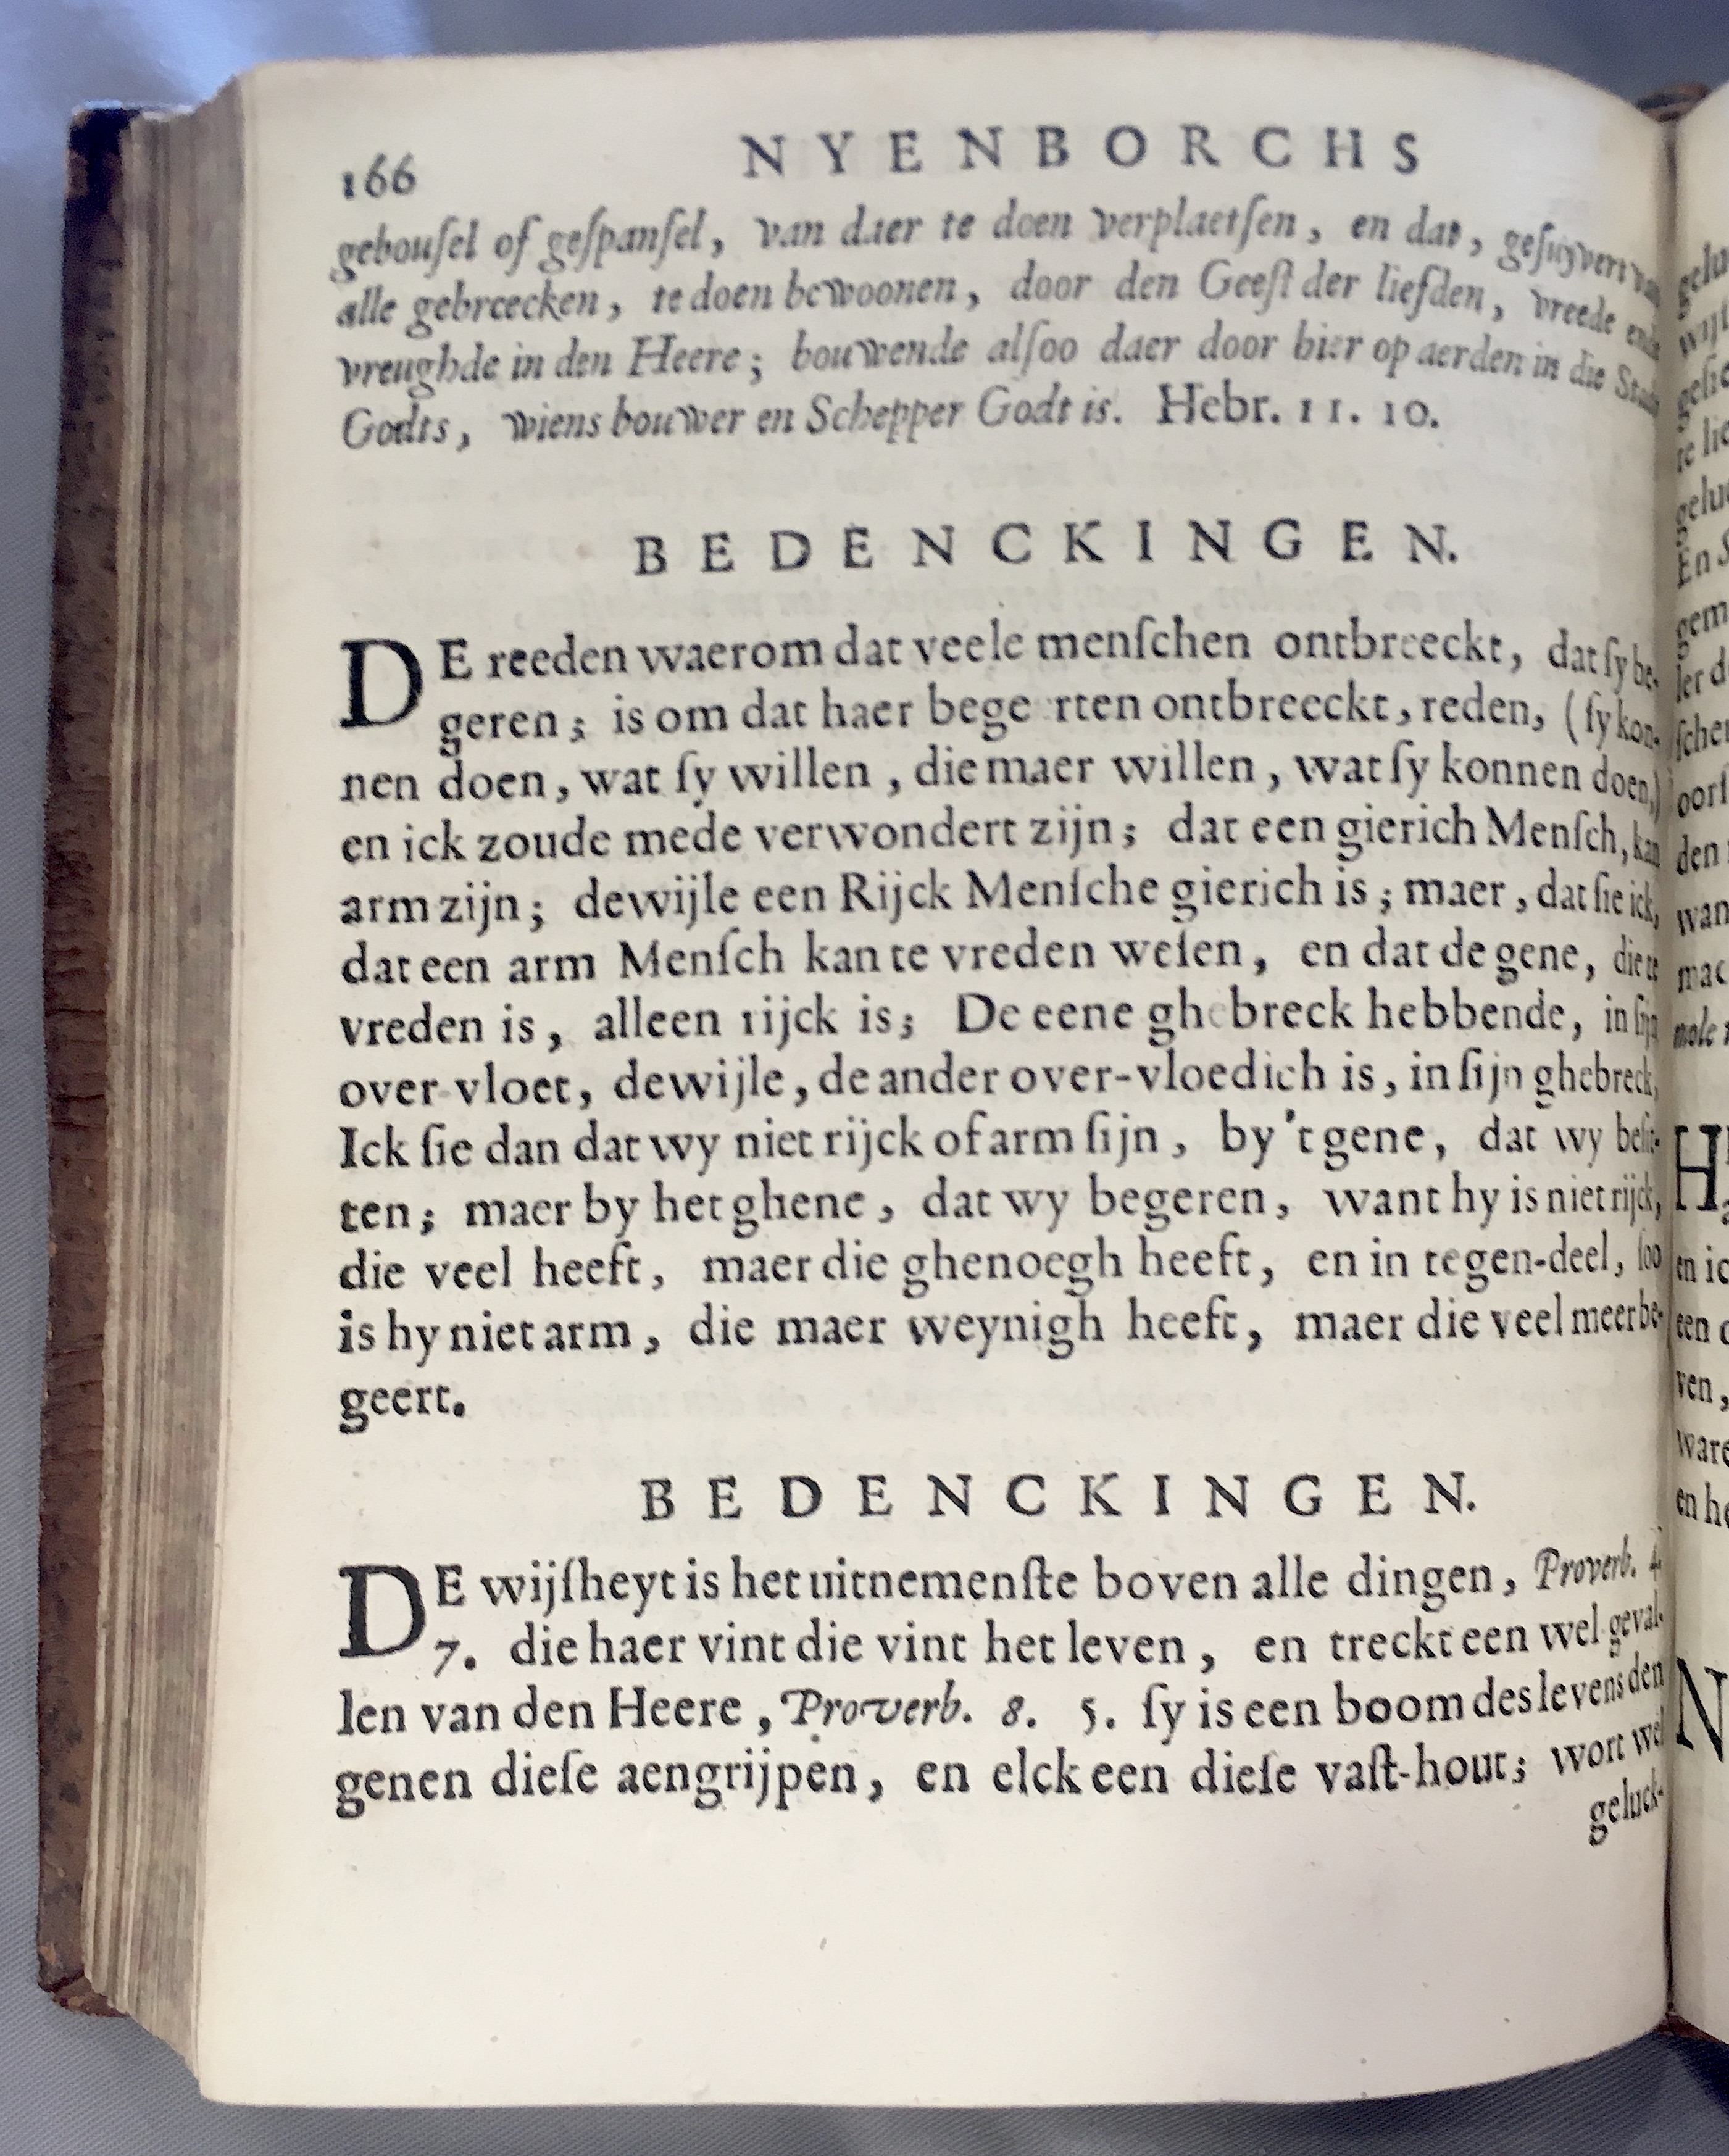 166 NYENBORCHS
gebouſel of geſpanſel, van daer te doen verplaetſen, en dat, geſuyvert van
alle gebreecken, te doen bewoonen, door den Geeſt der liefden, vreede ende
vreughde in den Heere; bouwende alſoo daer door hier op aerden in die Stadt
Godts, wiens bouwer en Schepper Godt is. Hebr. 11. 10.
BEDENCKINGEN.
DE reeden waerom dat veele menſchen ontbreeckt, dat ſy be-
geren; is om dat haer bege rten ontbreeckt, reden, (ſy kon-
nen doen, wat ſy willen, die maer willen, wat ſy konnen doen,)
en ick zoude mede verwondert zijn; dat een gierich Menſch, kan
arm zijn; dewijle een Rijck Menſche gierich is; maer, dat ſie ick,
dat een arm Menſch kan te vreden weſen, en dat de gene, die te
vreden is, alleen rijck is; De eene ghebreck hebbende, in ſijn
over-vloet, dewijle, de ander over-vloedich is, in ſijn ghebreck,
Ick ſie dan dat wy niet rijck of arm ſijn, by 't gene, dat wy beſit-
ten; maer by het ghene, dat wy begeren, want hy is niet rijck,
die veel heeft, maer die ghenoegh heeft, en in tegen-deel, ſoo
is hy niet arm, die maer weynigh heeft, maer die veel meer be-
geert.
BEDENCKINGEN.
DE wijſheyt is het uitnemenſte boven alle dingen, Proverb. 4.
7. die haer vint die vint het leven, en treckt een wel geval-
len van den Heere, Proverb. 8. 5. ſy is een boom des levens den
genen dieſe aengrijpen, en elck een dieſe vaſt-hout; wort wel
geluck-